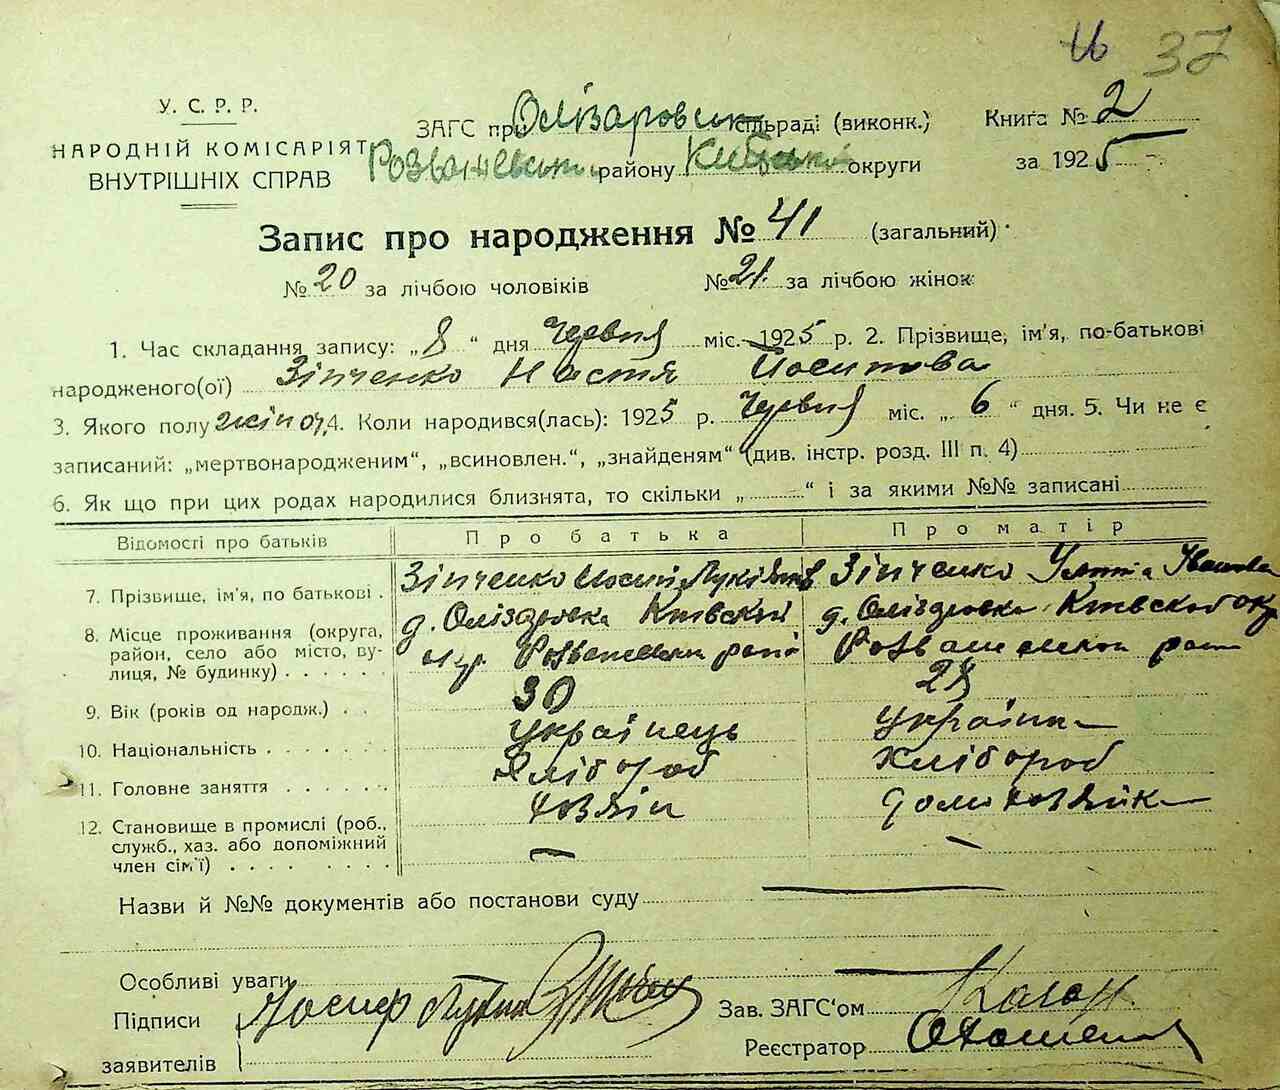 И 37
У. С. Р. Р.
НАРОДНІЙ КОМІСАРІЯТ
ВНУТРІШНІХ СПРАВ
ЗАГС при Олізаровськ сільраді (виконк.)
Розважевськ району Київської округи
Книга № 2
за 1925
Запис про народження № 41 (загальний)
№ 20 за лічбою чоловіків № 21 за лічбою жінок
1. Час складання запису: „ 8 “ дня Червня міс. 1925 р. 2. Прізвище, ім'я, по-батькові
народженого(ої) Зінченко Настя Йосипова
3. Якого полу жіноч. 4. Коли народився(лась): 1925 р. Червня міс. „ 6 “ дня. 5. Чи не є
записаний: „мертвонародженим“, „всиновлен.“, „знайденям“ (див. інстр. розд. III п. 4)
6. Як що при цих родах народилися близнята, то скільки „ “ і за якими №№ записані
Відомості про батьків Про батька Про матір
7. Прізвище, ім'я, по батькові . Зінченко Йосип Лукіянов Зінченко Улита Іванова
8. Місце проживання (округа, д. Олізаровка Київской д. Олізаровка Київской окр
район, село або місто, ву- окр. Розважевськ район Розважевской район
лиця, № будинку) . . . . . .
9. Вік (років од народж.) . . 30 28
10. Національність . . . . . . . українець українка
11. Головне заняття . . . . . . хлібороб хлібороб
12. Становище в промислі (роб., хозяін домохозяйка
служб., хаз. або допоміжний — —
член сім'ї) . . . . . . . . .
Назви й №№ документів або постанови суду
Особливі уваги
Підписи
заявителів
Зав. ЗАГС'ом
Реєстратор